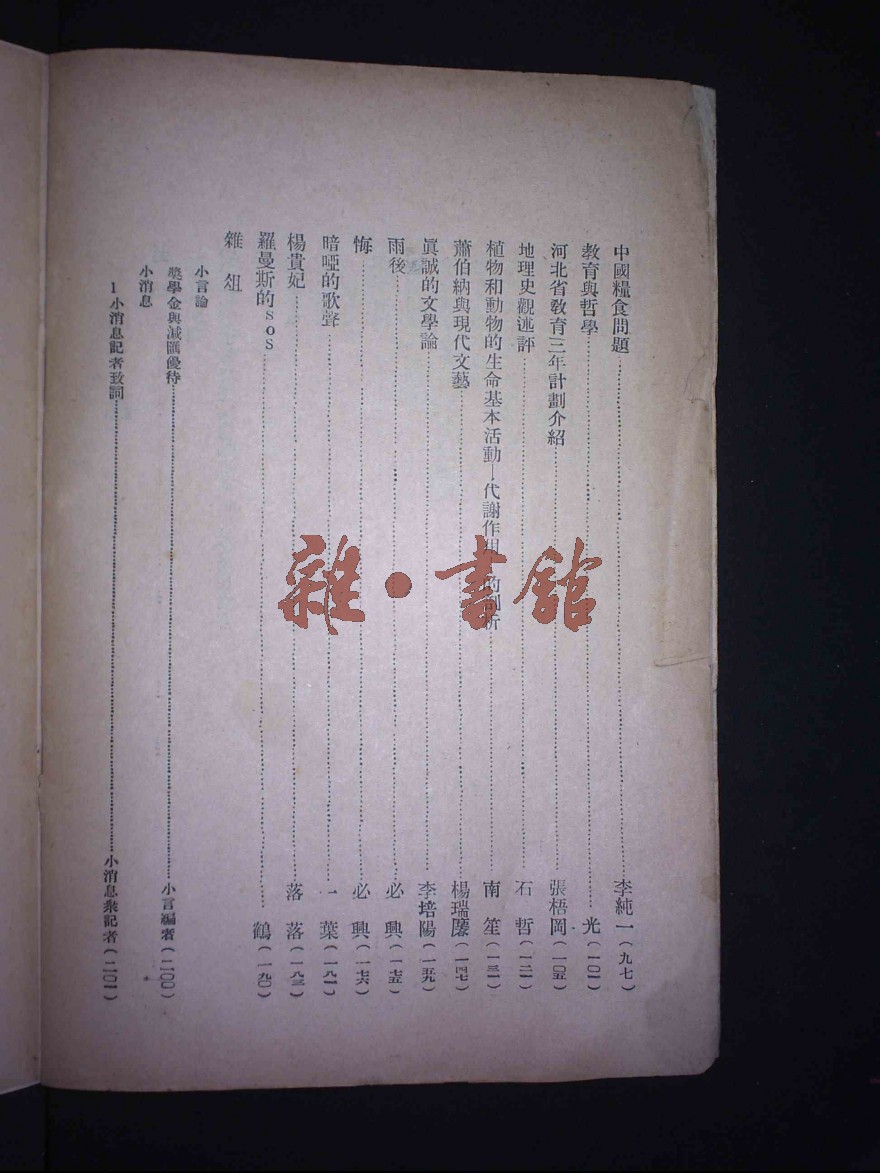 中國糧食問題………李純一(九七)
教育與哲學………光(一〇一)
河北省教育三年計劃介紹………張梧岡(一〇五)
地理史觀述評………石哲(一二一)
植物和動物的生命基本活動—代謝作用 的剖析………南笙(一三一)
蕭伯納與現代文藝………楊瑞麐(一四七)
眞誠的文學論………李培陽(一五九)
雨後………必興(一七五)
悔………必興(一七六)
暗啞的歌聲………一葉(一八一)
楊貴妃………落落(一八三)
羅曼斯的sos………鶴(一九〇)
雜俎
小言論
獎學金與減匯優待………小言編者(二〇〇)
小消息
1小消息記者致詞………小消息衆記者(二〇一)
雜·書館